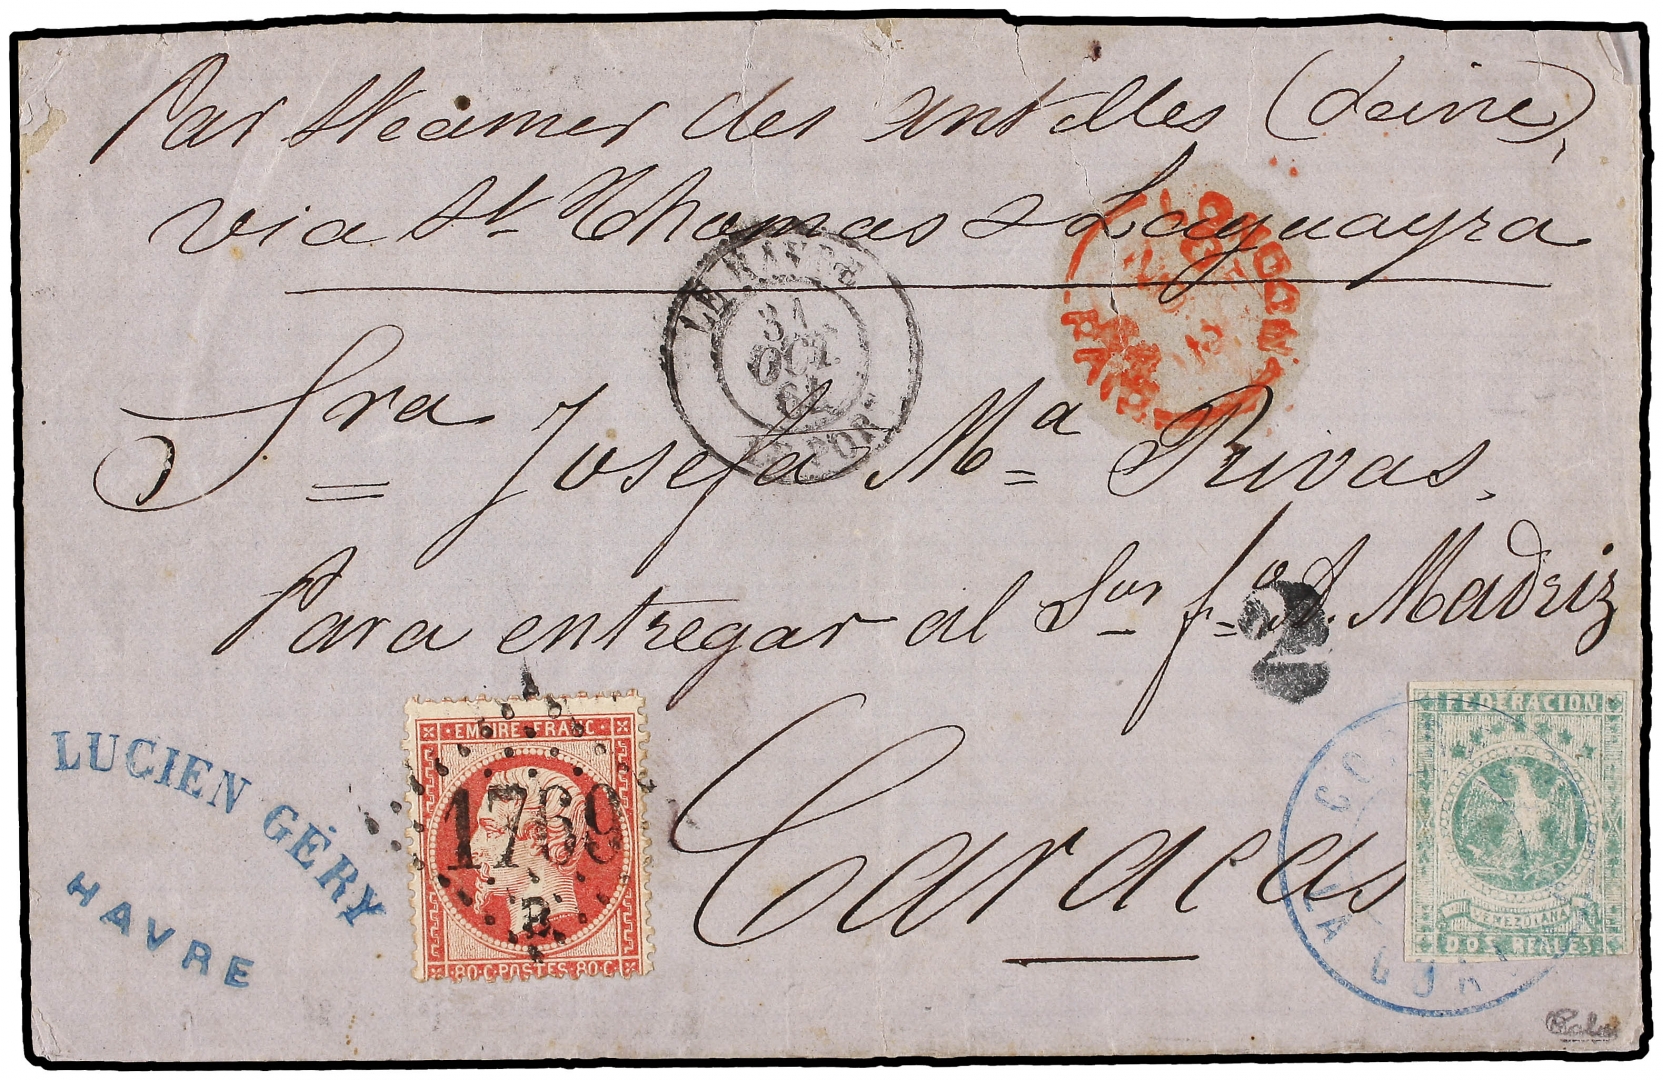 Par Steamer des Antilles (Seine),
via St Thomas & Laguayra
LE HAVRE
31
OCT.
64
LE PORT
LONDON
PAID
Sra Josefa Ma Rivas.
Para entregar al Sor fo A. Madriz
2
Caracas
LUCIEN GÉRY
HAVRE
EMPIRE FRANC
1769
B
80·C·POSTES·80·C·
FEDERACION
VENEZOLANA
DOS REALES
LA GUA